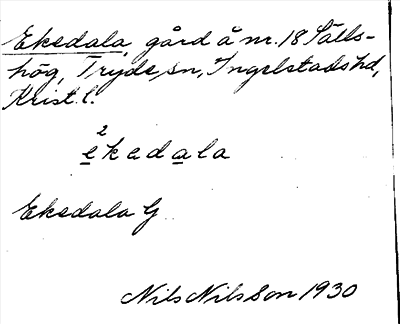 Eksdala, gård å nr. 18 Sälls-
hög, Tryde sn, Ingelstads hd,
Krist. l.
2
ekedala
Eksdala G
Nils Nilsson 1930